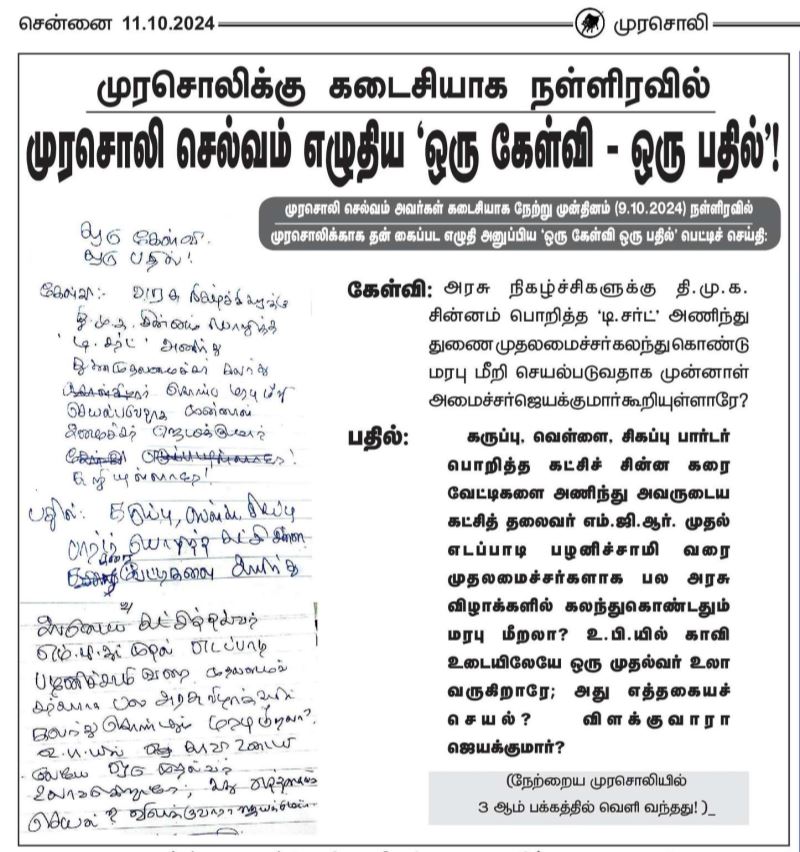 சென்னை 11.10.2024
முரசொலி
முரசொலிக்கு கடைசியாக நள்ளிரவில்
முரசொலி செல்வம் எழுதிய ‘ஒரு கேள்வி - ஒரு பதில்’!
முரசொலி செல்வம் அவர்கள் கடைசியாக நேற்று முன்தினம் (9.10.2024) நள்ளிரவில்
முரசொலிக்காக தன் கைப்பட எழுதி அனுப்பிய ‘ஒரு கேள்வி ஒரு பதில்’ பெட்டிச் செய்தி:
ஒரு கேள்வி
ஒரு பதில்!
கேள்வி: அரசு நிகழ்ச்சிகளுக்கு
தி.மு.க. சின்னம் பொறித்த
‘டி சர்ட்’ அணிந்து
துணைமுதலமைச்சர் கலந்து
கொண்டு மரபு மீறி
செயல்படுவதாக முன்னாள்
அமைச்சர் ஜெயக்குமார்
கூறியுள்ளாரே!
பதில்: கருப்பு, வெள்ளை, சிகப்பு
பார்டர் பொறித்த கட்சி சின்ன
கரை வேட்டிகளை அணிந்து
கட்சித்தலைவர்
எம்.ஜி.ஆர். முதல் எடப்பாடி
பழனிச்சாமி வரை முதலமைச்
சர்களாக பல அரசு விழாக்களில்
கலந்து கொண்டதும் மரபு மீறலா?
உ.பி.யில் காவி உடையி
லேயே ஒரு முதல்வர்
உலா வருகிறாரே; அது எத்தகைய
செயல்? விளக்குவாரா ஜெயக்குமார்?
கேள்வி: அரசு நிகழ்ச்சிகளுக்கு தி.மு.க.
சின்னம் பொறித்த ‘டி.சர்ட்’ அணிந்து
துணை முதலமைச்சர்கலந்துகொண்டு
மரபு மீறி செயல்படுவதாக முன்னாள்
அமைச்சர்ஜெயக்குமார்கூறியுள்ளாரே?
பதில்: கருப்பு, வெள்ளை, சிகப்பு பார்டர்
பொறித்த கட்சிச் சின்ன கரை
வேட்டிகளை அணிந்து அவருடைய
கட்சித் தலைவர் எம்.ஜி.ஆர். முதல்
எடப்பாடி பழனிச்சாமி வரை
முதலமைச்சர்களாக பல அரசு
விழாக்களில் கலந்துகொண்டதும்
மரபு மீறலா? உ.பி.யில் காவி
உடையிலேயே ஒரு முதல்வர் உலா
வருகிறாரே; அது எத்தகையச்
செயல்? விளக்குவாரா
ஜெயக்குமார்?
(நேற்றைய முரசொலியில்
3 ஆம் பக்கத்தில் வெளி வந்தது! )_